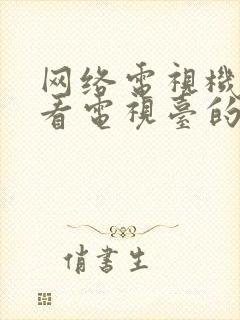 网络電視機
看電視臺的
俏書生